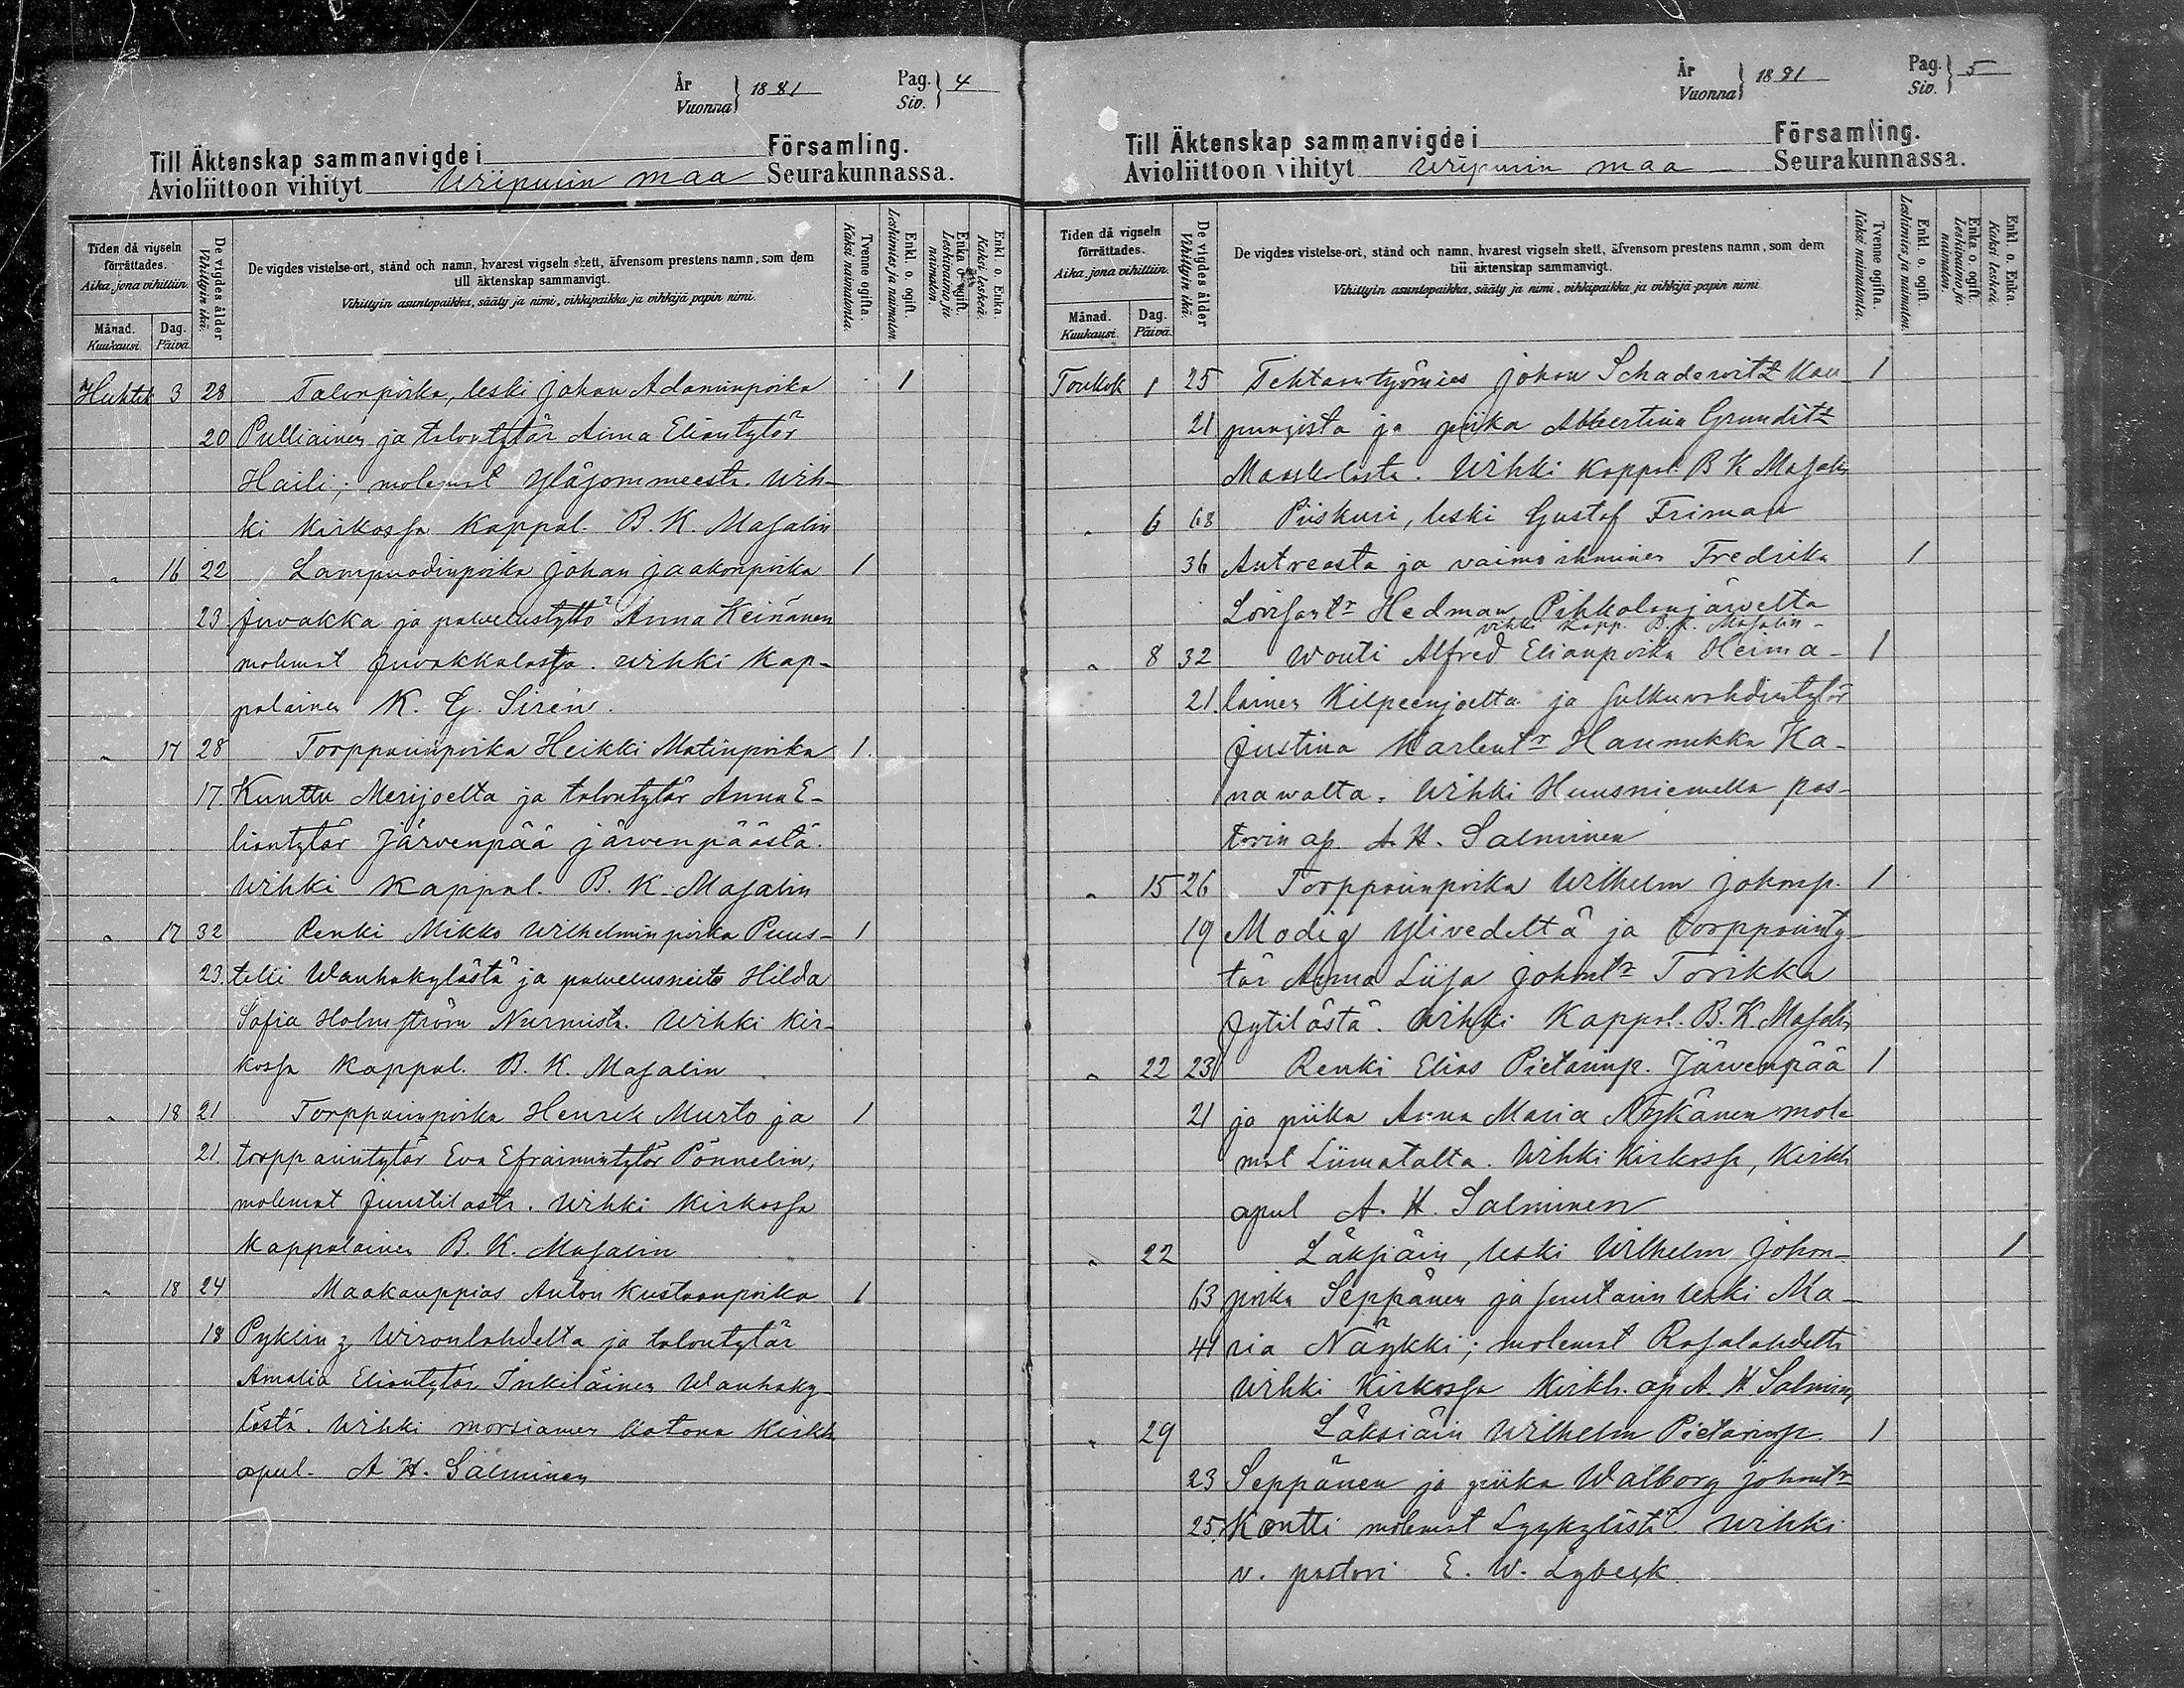 År
Vuonna } 1881
Pag.
Siv. } 4
Till Äktenskap sammanvigde i Församling.
Avioliittoon vihityt Wiipurin maa Seurakunnassa.
Tiden då vigseln förrättades.
Aika, jona vihittiin.
Månad.
Kuukausi.
Dag.
Päivä.
De vigdes ålder
Vihittyin ikä.
De vigdes vistelse-ort, stånd och namn, hvarest vigseln skett, äfvensom prestens namn, som dem
till äktenskap sammanvigt.
Vihittyin asuntopaikka, sääty ja nimi, vihkipaikka ja vihkijä papin nimi.
Tvenne ogifta.
Kaksi naimatonta.
Enkl. o. ogift.
Leskimies ja naimaton.
Enka o. ogift.
Leskivaimo ja naimaton.
Enkl. o. Enka.
Kaksi leskeä.
Huhtik 3 28 Talonpoika, leski Johan Adaminpoika 1
20 Pulliainen ja talontytär Anna Eliantytär
Haili; molemat Yläsommeesta. Wih-
ki kirkossa Kappal. B. K. Majalin
" 16 22 Lampuodinpoika Johan Jaakonpoika 1
23 Juvakka ja palvelustyttö Anna Keinänen
molemat Juvakkalasta. Wihki Kap-
palainen K. G. Sirén.
" 17 28 Torpparinpoika Heikki Matinpoika 1.
17 Kunttu Merijoelta ja talontytär Anna E-
liantytär Järvenpää Järvenpäästä.
Wihki Kappal. B. K. Majalin
" 17 32 Renki Mikko Wilhelmin poika Puus- 1
23. telli Wanhakylästä ja palvelusneito Hilda
Sofia Holmström Nurmista. Wihki kir-
kossa Kappal. B. K. Majalin
" 18 21 Torpparinpoika Henrik Murto ja 1
21. torpparintytär Eva Efraimintytär Pönnelin,
molemat Juustilasta. Wihki kirkossa
Kappalainen B. K. Majalin
" 18 24 Maakauppias Anton Kustaanpoika 1
18 Pyklin Wironlahdelta ja talontytär
Amalia Eliantytär Inkiläinen Wanhaky-
lästä. Wihki morsiamen kotona Kirkh.
apul. A. H. Salminen
År
Vuonna } 1881
Pag.
Siv. } 5
Till Äktenskap sammanvigde i Församling.
Avioliittoon vihityt Wiipurin maa Seurakunnassa.
Tiden då vigseln förrättades.
Aika, jona vihittiin.
Månad.
Kuukausi.
Dag.
Päivä.
De vigdes ålder
Vihittyin ikä.
De vigdes vistelse-ort, stånd och namn, hvarest vigseln skett, äfvensom prestens namn, som dem
till äktenskap sammanvigt.
Vihittyin asuntopaikka, sääty ja nimi, vihkipaikka ja vihkijä papin nimi.
Tvenne ogifta.
Kaksi naimatonta.
Enkl. o. ogift.
Leskimies ja naimaton.
Enka o. ogift.
Leskivaimo ja naimaton.
Enkl. o. Enka.
Kaksi leskeä.
Toukok 1 25 Tehtaantyömies Johan Schadewitz Kau- 1
21 pungista ja piika Albertina Grunditz
Maaskolasta. Wihki Kappal. B K Majalin
" 6 68 Piiskuri, leski Gustaf Friman
36 Antreasta ja vaimo ihminen Fredrika 1
Lovisantr Hedman Pihkalanjärvelta
vihki Kapp. B. K. Majalin
" 8 32 Wouti Alfred Elianpoika Heima- 1
21. lainen Kilpeenjoelta ja sulkuvahdintytär
Justina Kaarlentr Haunukka Ka-
nawalta. Wihki Huusniemellä pas-
torin ap. A. H. Salminen
" 15 26 Torpparinpoika Wilhelm Johanp. 1
19 Modig Ylivedeltä ja torpparinty-
tär Anna Liisa Johantr Torikka
Jytilästä. Wihki Kappal. B. K. Majalin
" 22 23 Renki Elias Pietarinp. Järvenpää 1
21 ja piika Anna Maria Nykänen mole
mat Liimatalta. Wihki kirkossa, Kirkh
apul A. H. Salminen
" 22 Läksiäin, leski Wilhelm Johan- 1
63 poika Seppänen ja leski Ma-
41 ria Näykki; molemat Rasalahdelta
Wihki Kirkossa Kirkh. ap A. H Salminen
" 29 Läksiäin Wilhelm Pietarinp. 1
23 Seppänen ja piika Walborg Johantr
25. Kontti molemat Lyykylästä. Wihki
v. pastori E. W. Lybeck.